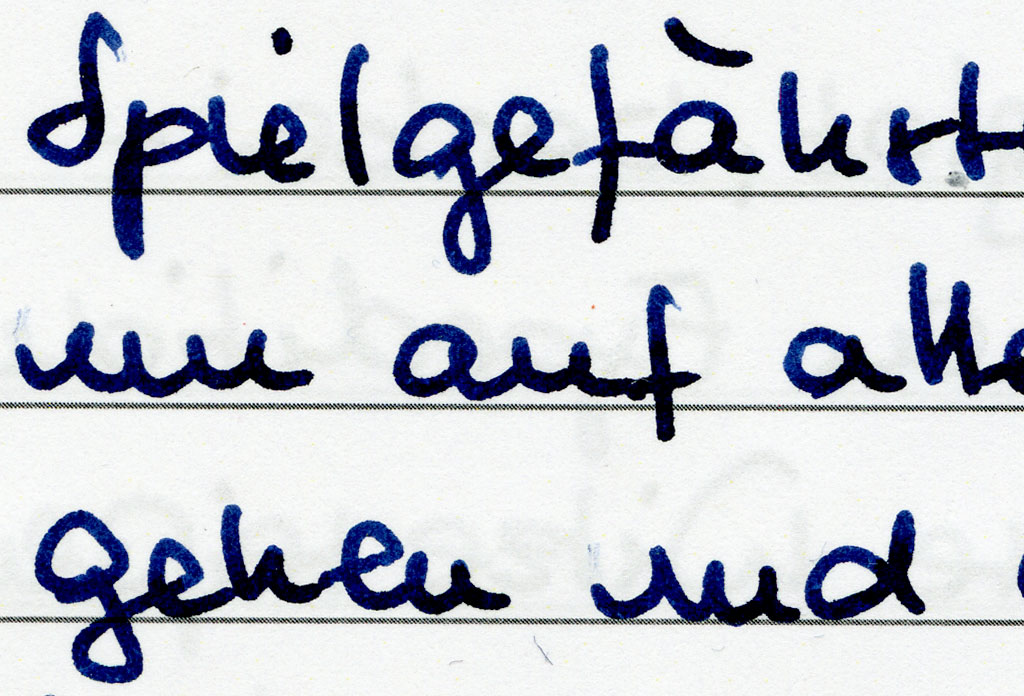 Spielgefährt
um auf alle
gehen und